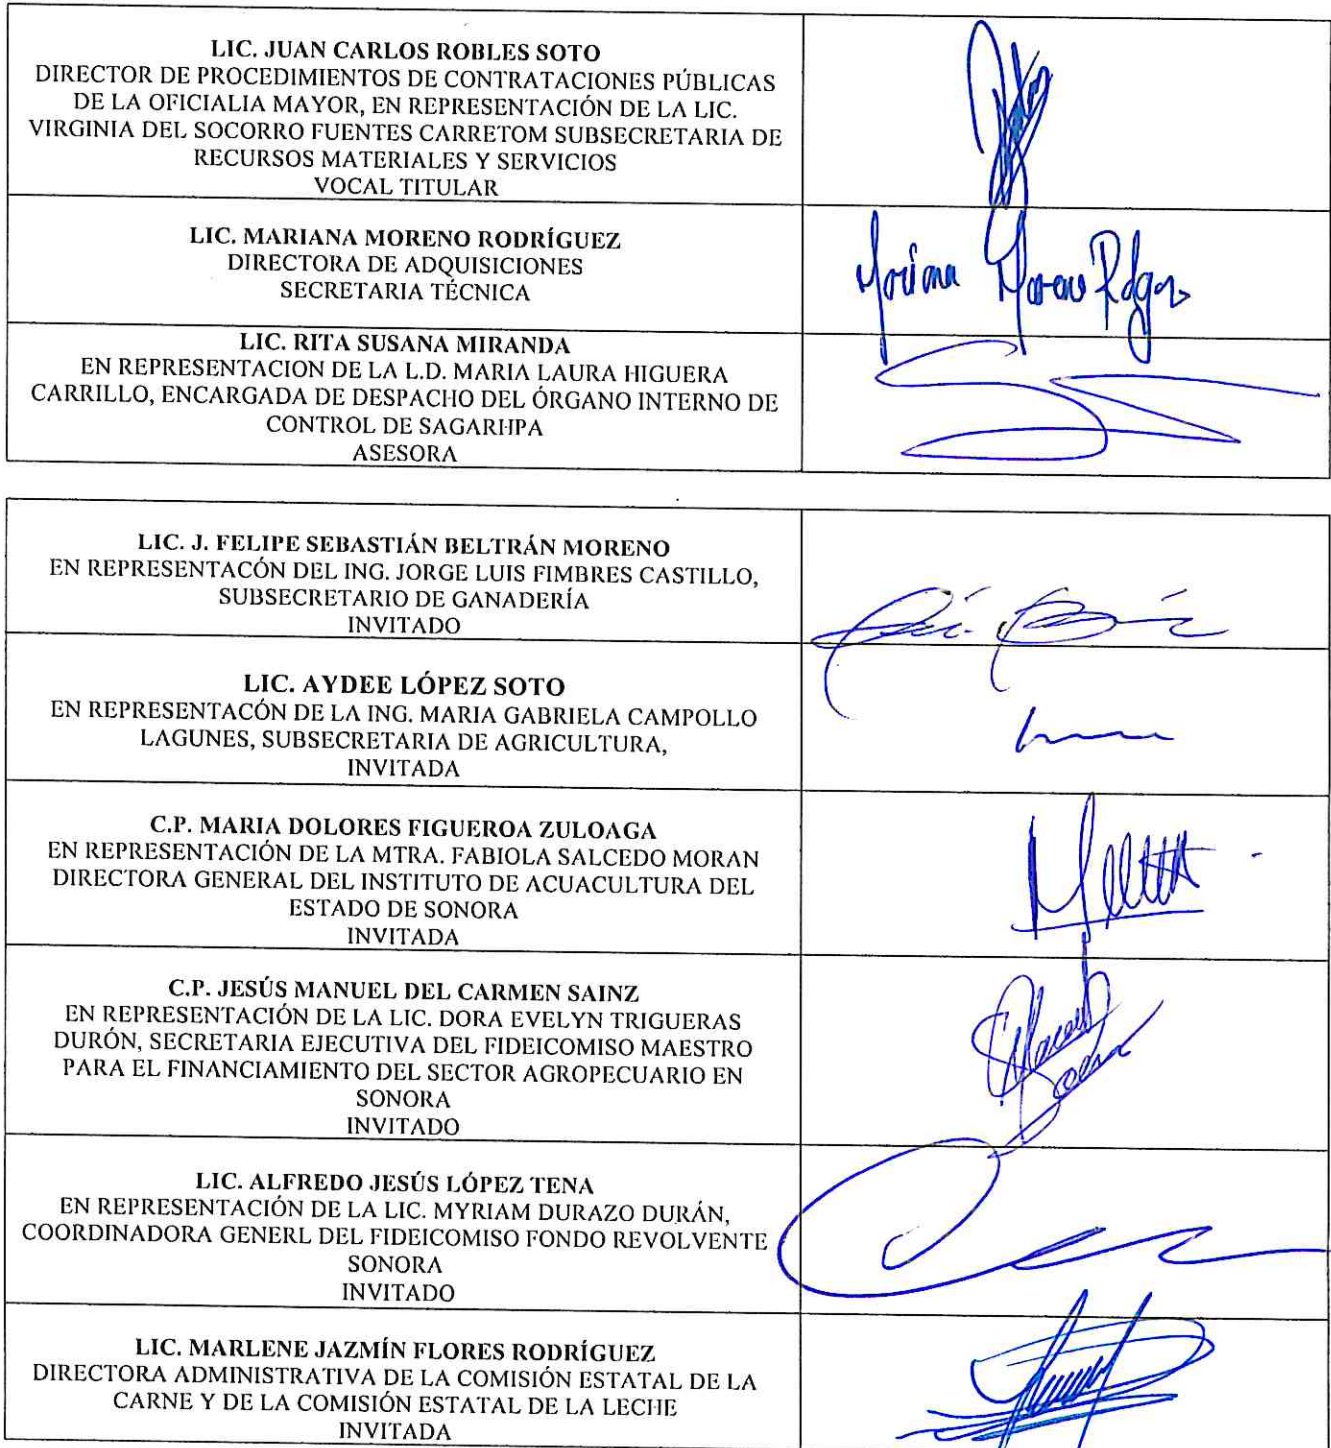 LIC. JUAN CARLOS ROBLES SOTO
DIRECTOR DE PROCEDIMIENTOS DE CONTRATACIONES PÚBLICAS
DE LA OFICIALIA MAYOR, EN REPRESENTACIÓN DE LA LIC.
VIRGINIA DEL SOCORRO FUENTES CARRETOM SUBSECRETARIA DE
RECURSOS MATERIALES Y SERVICIOS
VOCAL TITULAR
LIC. MARIANA MORENO RODRÍGUEZ
DIRECTORA DE ADQUISICIONES
SECRETARIA TÉCNICA
Mariana Moreno Rdgz
LIC. RITA SUSANA MIRANDA
EN REPRESENTACION DE LA L.D. MARIA LAURA HIGUERA
CARRILLO, ENCARGADA DE DESPACHO DEL ÓRGANO INTERNO DE
CONTROL DE SAGARHPA
ASESORA
LIC. J. FELIPE SEBASTIÁN BELTRÁN MORENO
EN REPRESENTACÓN DEL ING. JORGE LUIS FIMBRES CASTILLO,
SUBSECRETARIO DE GANADERÍA
INVITADO
LIC. AYDEE LÓPEZ SOTO
EN REPRESENTACÓN DE LA ING. MARIA GABRIELA CAMPOLLO
LAGUNES, SUBSECRETARIA DE AGRICULTURA,
INVITADA
C.P. MARIA DOLORES FIGUEROA ZULOAGA
EN REPRESENTACIÓN DE LA MTRA. FABIOLA SALCEDO MORAN
DIRECTORA GENERAL DEL INSTITUTO DE ACUACULTURA DEL
ESTADO DE SONORA
INVITADA
C.P. JESÚS MANUEL DEL CARMEN SAINZ
EN REPRESENTACIÓN DE LA LIC. DORA EVELYN TRIGUERAS
DURÓN, SECRETARIA EJECUTIVA DEL FIDEICOMISO MAESTRO
PARA EL FINANCIAMIENTO DEL SECTOR AGROPECUARIO EN
SONORA
INVITADO
LIC. ALFREDO JESÚS LÓPEZ TENA
EN REPRESENTACIÓN DE LA LIC. MYRIAM DURAZO DURÁN,
COORDINADORA GENERL DEL FIDEICOMISO FONDO REVOLVENTE
SONORA
INVITADO
LIC. MARLENE JAZMÍN FLORES RODRÍGUEZ
DIRECTORA ADMINISTRATIVA DE LA COMISIÓN ESTATAL DE LA
CARNE Y DE LA COMISIÓN ESTATAL DE LA LECHE
INVITADA